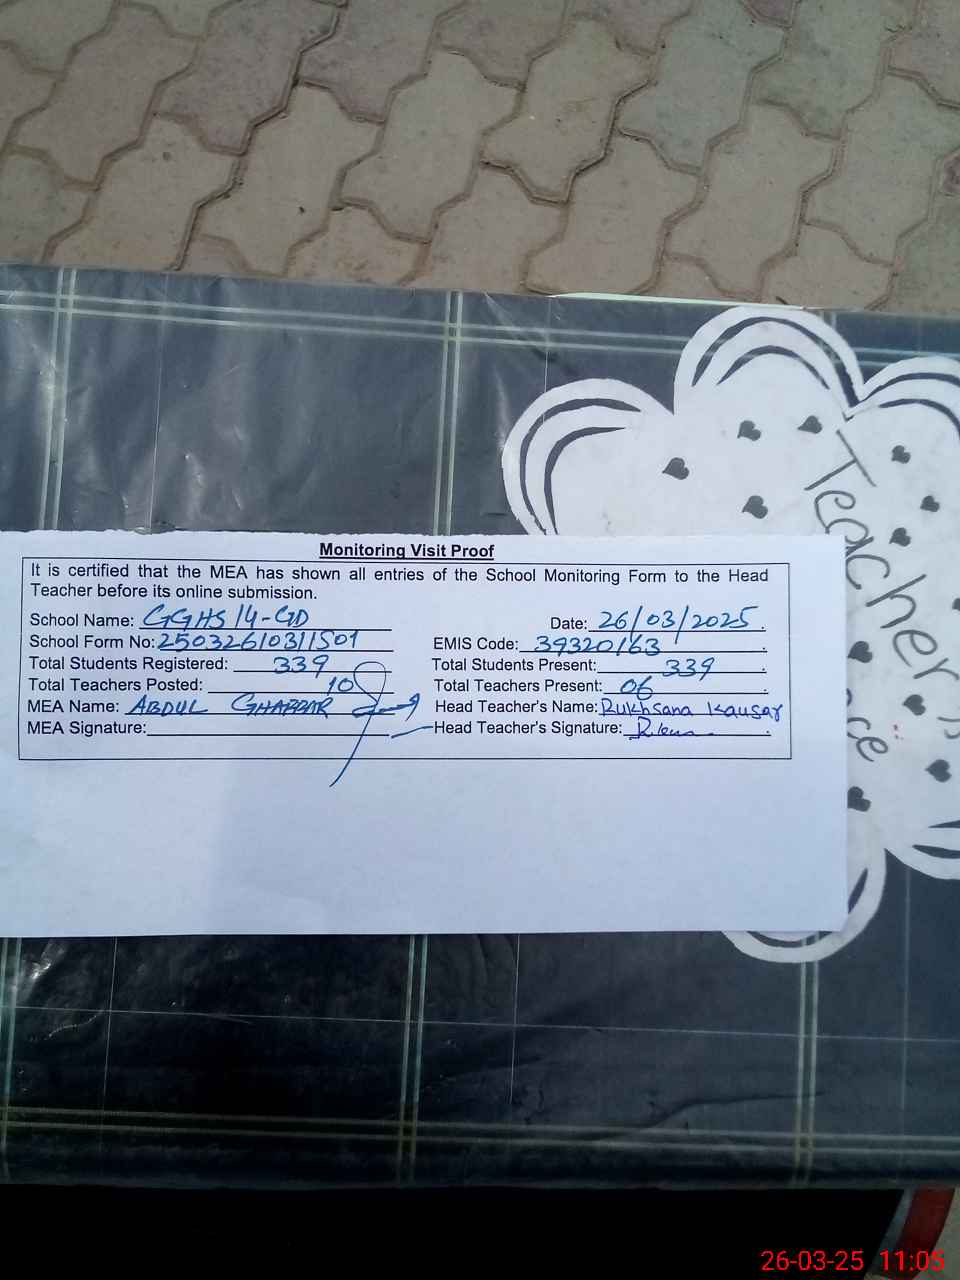 Monitoring Visit Proof
It is certified that the MEA has shown all entries of the School Monitoring Form to the Head
Teacher before its online submission.
School Name: GGHS 14-GD Date: 26/03/2025
School Form No: 25032610311501 EMIS Code: 39320163
Total Students Registered: 339 Total Students Present: 339
Total Teachers Posted: 10 Total Teachers Present: 06
MEA Name: ABDUL GHAFFAR Head Teacher's Name: Rukhsana Kausar
MEA Signature: Head Teacher's Signature:
Teacher
26-03-25 11:05